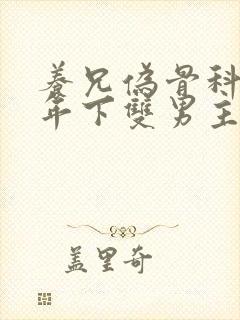 養兄偽骨科
年下雙男主
蓋里奇